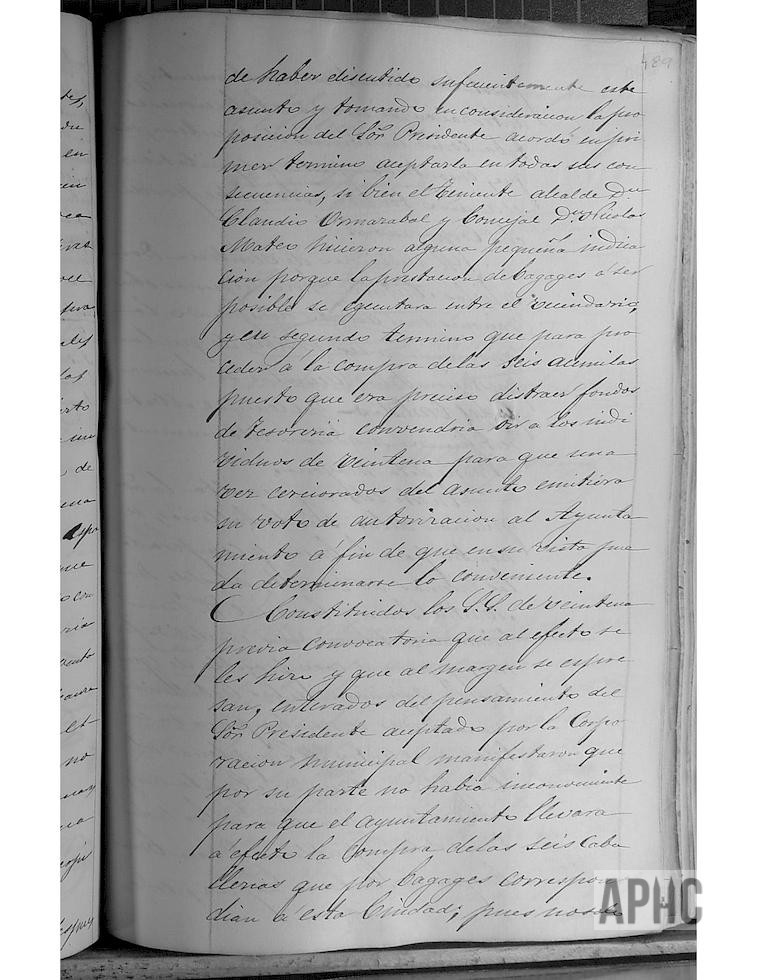 489
de haber discutido suficientemente este
asunto y tomando en consideracion la pro
posicion del Sor. Presidente acordó en pri
mer termino aceptarla en todas sus con
secuencias, si bien el Teniente alcalde Dn
Claudio Ormazabal y Concejal Dn Nicolas
Mateo hicieron alguna pequeña indica
cion porque la prestacion de bagages á ser
posible se egecutara entre el vecindario;
y en segundo termino que para pro
ceder á la compra de las seis acemilas
puesto que era preciso distraer fondos
de tesoreria convendria oir á los indi
viduos de veintena para que una
vez cerciorados del asunto emitiera
su voto de autorizacion al Ayunta
miento á fin de que en su vista pue
da determinarse lo conveniente.
Constituidos los S.S. de veintena
previa convocatoria que al efecto se
les hizo y que al margen se espre
san, enterados del pensamiento del
Sor. Presidente aceptado por la Corpo
racion municipal manifestaron que
por su parte no habia inconveniente
para que el ayuntamiento llevara
á efecto la compra de las seis caba
llerias que por bagages correspon
dian á esta Ciudad; pues no solo
APHC